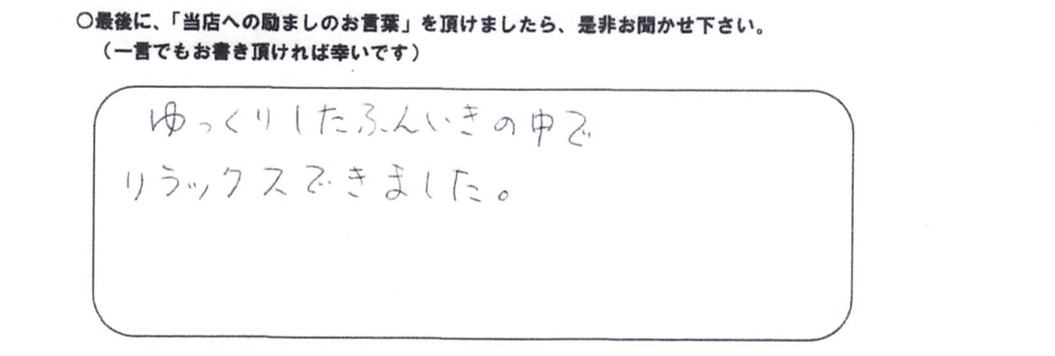 ○最後に、「当店への励ましのお言葉」を頂けましたら、是非お聞かせ下さい。
（一言でもお書き頂ければ幸いです）
ゆっくりしたふんいきの中で
リラックスできました。